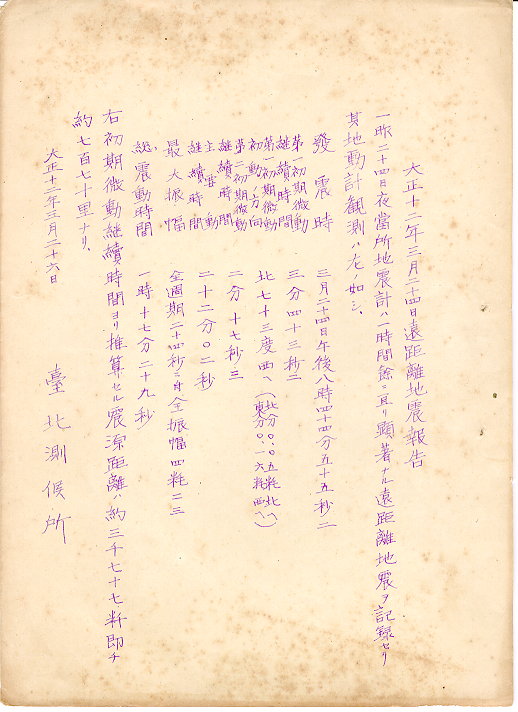 大正十二年三月二十四日遠距離地震報告
一昨二十四日夜當所地震計ハ一時間餘ニ亘リ顯著ナル遠距離地震ヲ記録セリ
其地動計観測ハ左ノ如シ、
發震時 三月二十四日午後八時四十四分五十五秒二
第一初期微動継續時間 三分四十三秒二
第一初期微動初動ノ方向 北七十三度西ヘ(北分〇.〇五粍北ヘ 東分〇.一六粍西ヘ)
第二初期微動継續時間 二分十七秒三
主要動継續時間 二十二分〇二秒
最大振幅 全週期二十四秒ニ〆全振幅四粍二三
総震動時間 一時十七分二十九秒
右初期微動継續時間ヨリ推算セル震源距離ハ約三千七十七粁即チ
約七百七十里ナリ、
大正十二年三月二十六日
臺北測候所